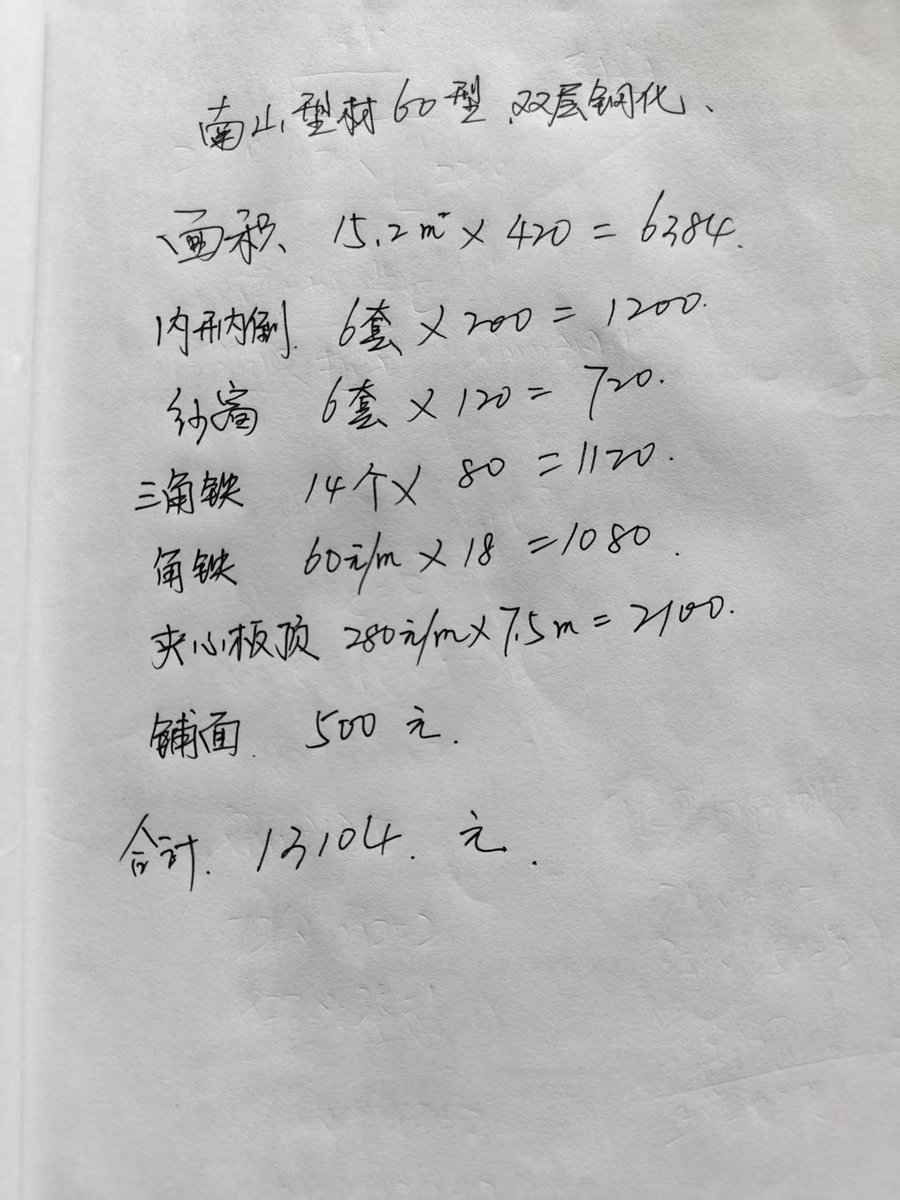 南山型材60型、双层钢化、
面积 15.2m²×420=6384.
内开内倒. 6套×200=1200.
纱窗 6套×120=720.
三角铁 14个×80=1120.
角铁 60元/m×18=1080.
夹心板顶 280元/m×7.5m=2100.
铺面. 500元.
合计. 13104.元.